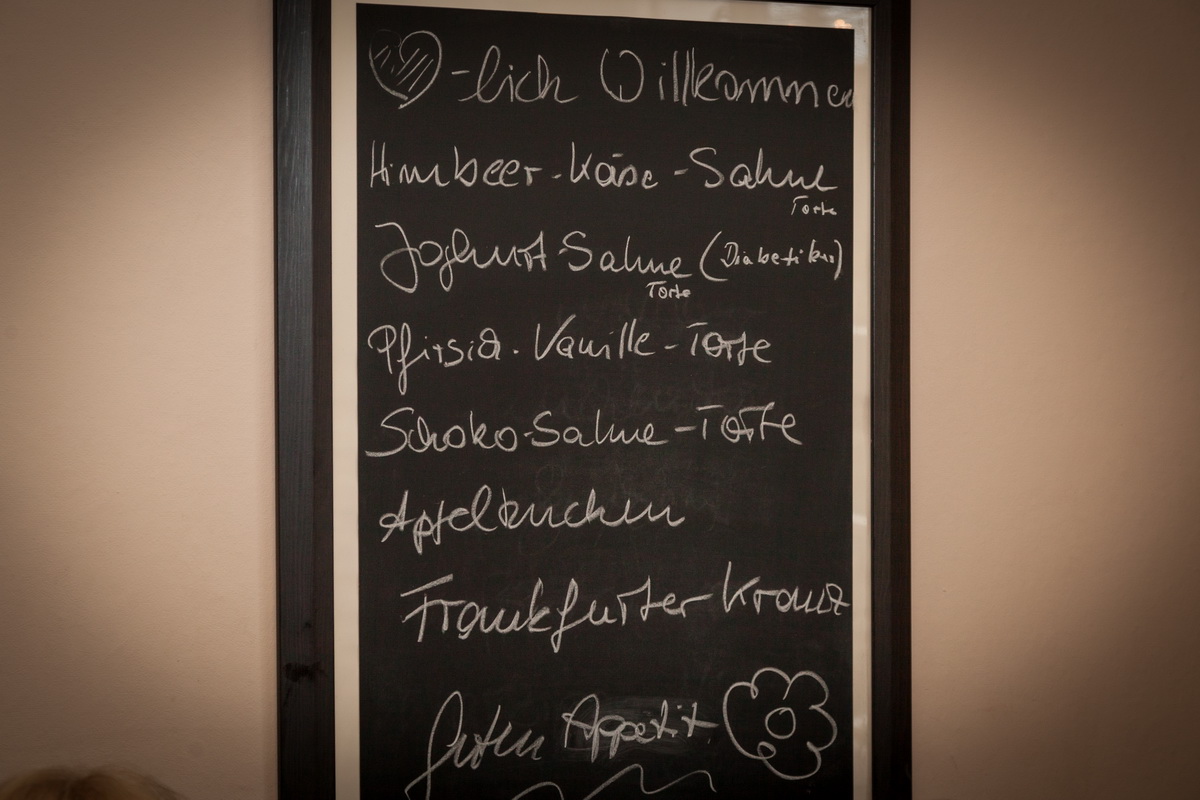 -lich Willkommen
Himbeer-Käse-Sahne
Torte
Joghurt-Sahne (Diabetiker)
Torte
Pfirsich-Vanille-Torte
Schoko-Sahne-Torte
Apfelkuchen
Frankfurter Kranz
Guten Appetit